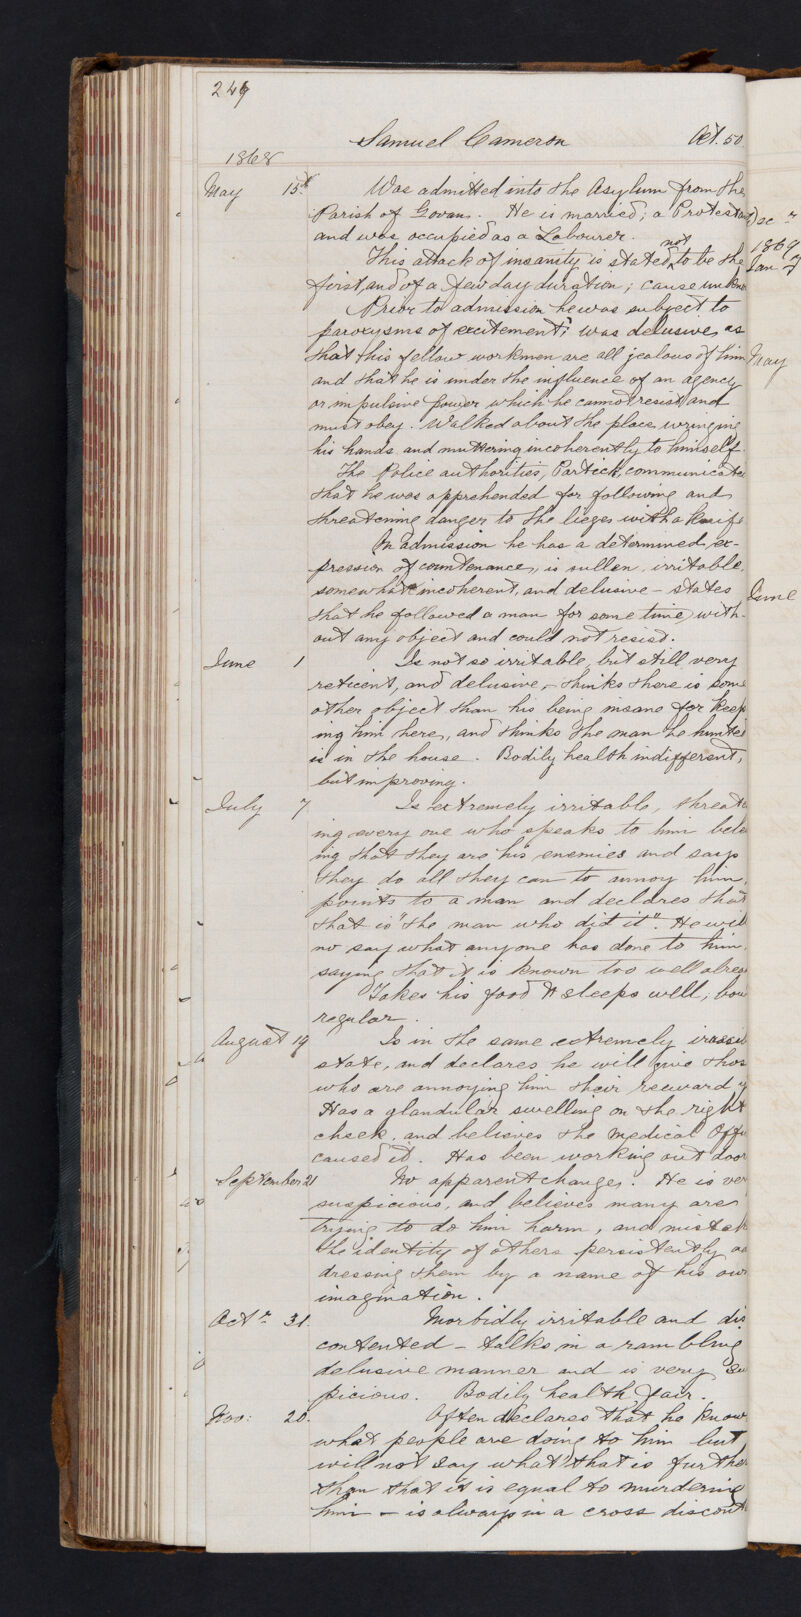 249
Samuel Cameron Aet. 50
1868
May 15th Was admitted into the Asylum from the
Parish of Govan. He is married; a Protestant
and was occupied as a Labourer.
This attack of insanity is stated not to be the
first, and of a few day duration; cause unkno
Prior to admission he was subject to
paroxysms of excitement; was delusive, as
that his fellow workmen are all jealous of him
and that he is under the influence of an agency
or impulsive power which he cannot resist and
must obey. Walked about the place, wringing
his hands and muttering incoherently to himself.
The Police authorities, Partick, communicate
that he was apprehended for following and
threatening danger to the lieges with a knife
On admission he has a determined ex-
pression of countenance, is sullen, irritable,
somewhat incoherent, and delusive - states
that he followed a man for some time with-
out any object and could not resist.
June 1 Is not so irritable, but still very
reticent, and delusive, - thinks there is some
other object than his being insane for keep
ing him here, and thinks the man he hunted
is in the house. Bodily health indifferent,
but improving.
July 7 Is extremely irritable, threate
ing every one who speaks to him bele
ing that they are his enemies and says
they do all they can to annoy him,
points to a man and declares that
that is "the man who did it". He will
no say what anyone has done to him,
saying that it is known too well alrea
Takes his food & sleeps well; bow
regular.
August 19 Is in the same extremely irasci
state, and declares he will give thos
who are annoying him their reward
Has a glandular swelling on the right
cheek, and believes the Medical Offi
caused it. Has been working out door
September 21 No apparent change. He is ver
suspicious, and believes many are
trying to do him harm, and mistak
the identity of others persistently ad
dressing them by a name of his own
imagination.
Octr 31. Morbidly irritable and dis
contented - talks in a rambling
delusive manner and is very su
picious. Bodily health fair.
Nov: 20. Often declares that he know
what people are doing to him but
will not say what that is further
than that it is equal to murdering
him - is always in a cross discont
Decr
1869
Jan 7
May
June